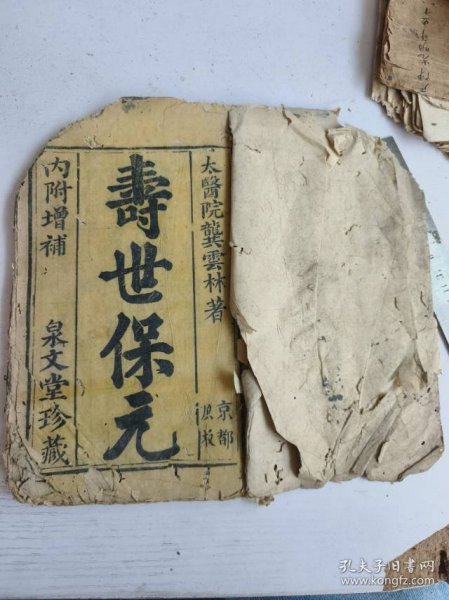 太醫院龔雲林著
京都
原板
壽世保元
內附增補
泉文堂珍藏
孔夫子旧书网
www.kongfz.com